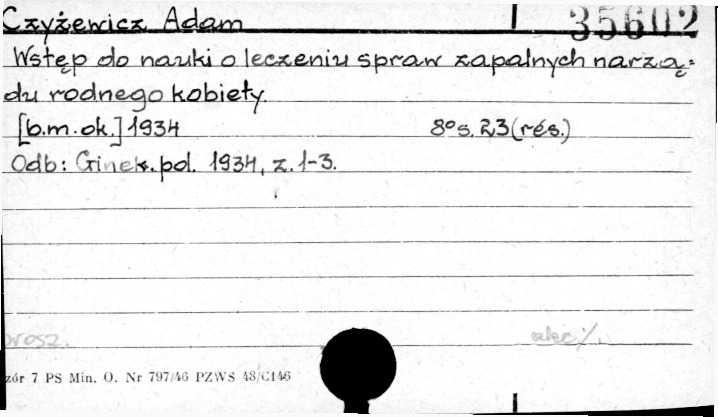 Czyżewicz Adam 35602
Wstęp do nauki o leczeniu spraw zapalnych narzą=
du rodnego kobiety.
[b.m.ok.] 1934 8° s. 23 (rés.)
Odb: Ginek. pol. 1934, z. 1-3.
brosz. akc/.
zór 7 PS Min. O. Nr 797/46 PZWS 48/C146